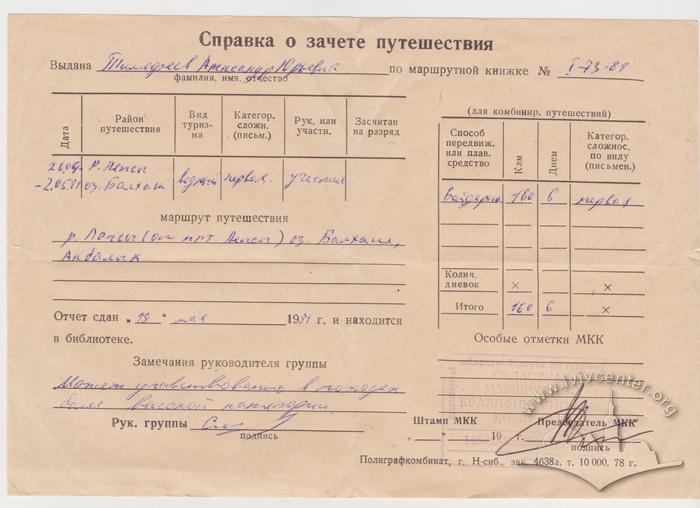 Справка о зачете путешествия
Выдана Тимофеев Александр Юрьевич по маршрутной книжке № I-73-81
фамилия, имя, отчество
(для комбинир. путешествий)
Дата
Район путешествия
Вид туриз-ма
Категор. сложн. (письм.)
Рук. или участн.
Засчитан на разряд
Способ передвиж. или плав. средство
Клм
Днем
Категор. сложнос. по виду (письмен.)
р. Лепсы оз. Балхаш
водный
первая
участник
Байдарка 160 6 первая
маршрут путешествия
р. Лепсы (от пгт. Лепсы) оз. Балхаш,
Акбалык
Колич. дневок × ×
Итого 160 6 ×
Отчет сдан „19“ мая 1981 г. и находится
в библиотеке.
Особые отметки МКК
Замечания руководителя группы
Может участвовать в походах
более высокой категории
Рук. группы
подпись
Штамп МКК
19 г.
Председатель МКК
подпись
Полиграфкомбинат, г. Н-сиб, зак. 4638а, т. 10 000, 78 г.
www.lvivcenter.org